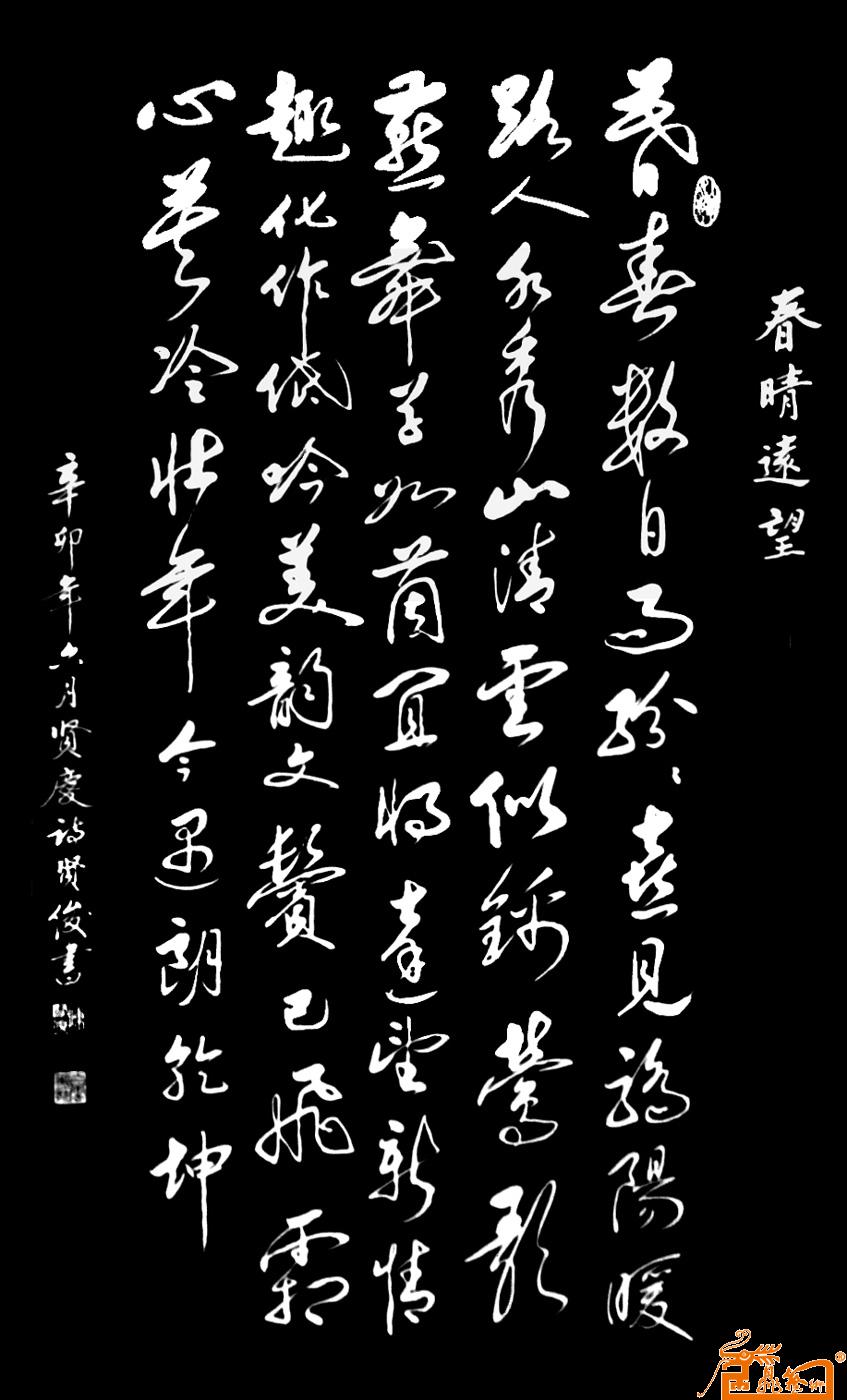 春晴遠望
暮春数日雨紛〻喜見驕陽暖
路人水秀山清雲似錦鶯歌
燕舞草如茵宜將遠望新情
趣化作低吟美韻文鬢已飛霜
心莫冷壮年今遇朗乾坤
辛卯年六月贤慶詩賢俊書